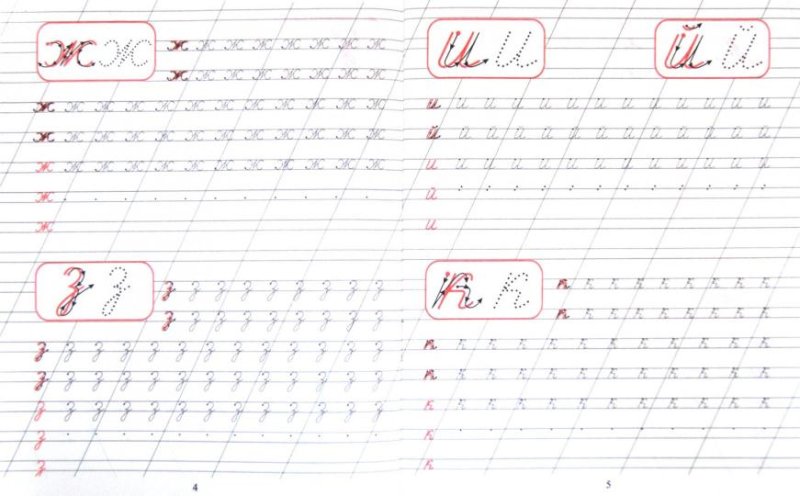 ж ж
ж ж ж ж ж ж ж ж
ж ж ж ж ж ж ж ж
ж ж ж ж ж ж ж ж ж ж ж ж
ж ж ж ж ж ж ж ж ж ж ж ж
ж ж ж ж ж ж ж ж ж ж ж ж
ж
ж
з з
з з з з з з з з з
з з з з з з з з з
з з з з з з з з з з з з з
з з з з з з з з з з з з з
з з з з з з з з з з з з з
з
з
4
и и й й
и и и и и и и и и и и и и
й й й й й й й й й й й й й й й
и и и и и и и и и и и и и
й
и
к к
к к к к к к к к к
к к к к к к к к к
к к к к к к к к к к к к
к к к к к к к к к к к к
к к к к к к к к к к к к
к
к
5